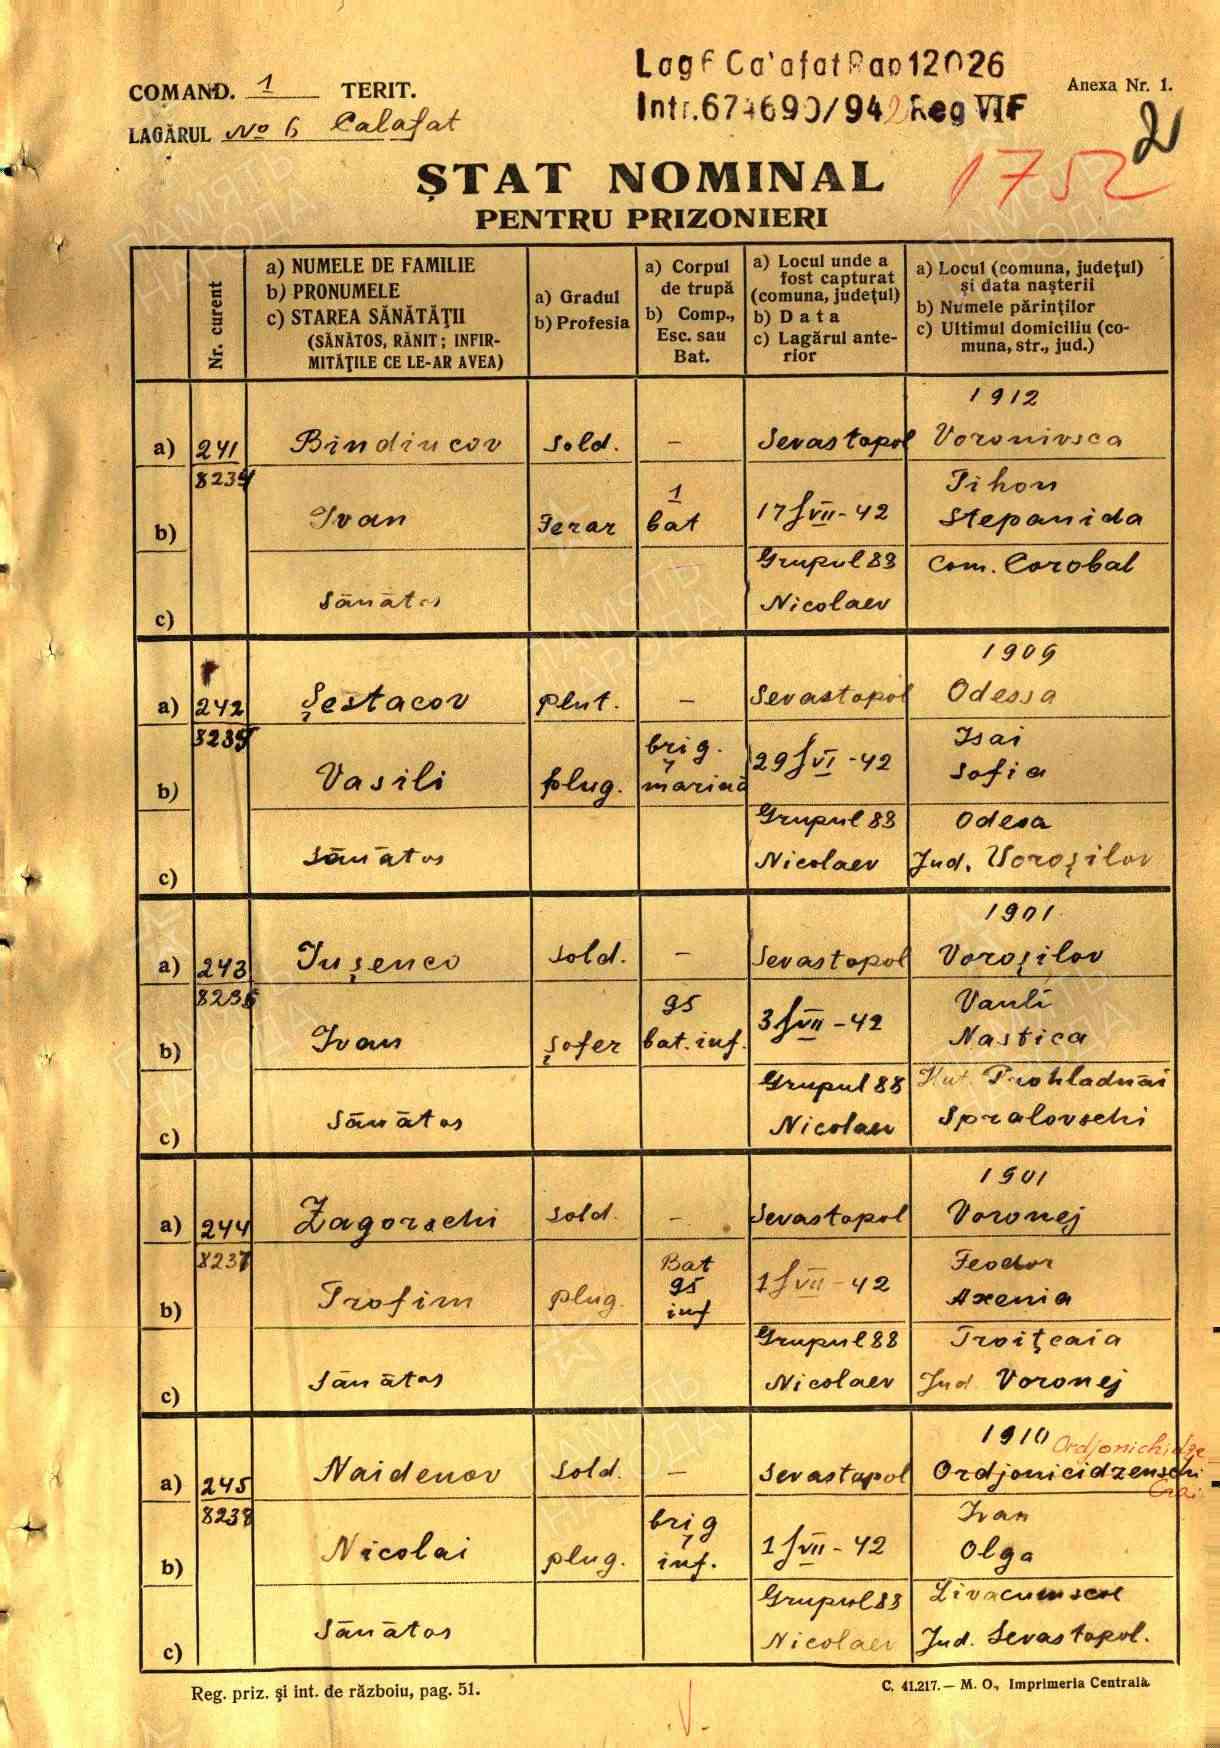 Lag 6 Calafat Rap 12026
Intr. 674690/942 Reg VII F
Anexa Nr. 1.
COMAND. 1 TERIT.
LAGĂRUL No 6 Calafat
2
1752
ȘTAT NOMINAL
PENTRU PRIZONIERI
Nr. curent
a) NUMELE DE FAMILIE
b) PRONUMELE
c) STAREA SĂNĂTĂŢII
(SĂNĂTOS, RĂNIT; INFIR-
MITĂŢILE CE LE-AR AVEA)
a) Gradul
b) Profesia
a) Corpul
de trupă
b) Comp.,
Esc. sau
Bat.
a) Locul unde a
fost capturat
(comuna, judeţul)
b) Data
c) Lagărul ante-
rior
a) Locul (comuna, judeţul)
şi data naşterii
b) Numele părinţilor
c) Ultimul domiciliu (co-
muna, str., jud.)
1912
a) 241 Bindiucov Sold. – Sevastopol Voronivsca
8234
b) Ivan Ferar 1 bat 17 VII-42 Tihon
Stepanida
c) Sănătos Grupul 88 Com. Corobal
Nicolaev
1909
a) 242 Şestacov plut. – Sevastopol Odessa
8235
b) Vasili plug. brig. 7 marină 29 VI-42 Isai
Sofia
c) Sănătos Grupul 88 Odesa
Nicolaev Jud. Voroşilov
1901
a) 243 Iuşenco Sold. – Sevastopol Voroşilov
8236
b) Ivan şofer 95 bat. inf. 3 VII-42
Nastica
c) Sănătos Grupul 88
Nicolaev
1901
a) 244 Zagorschi Sold. – Sevastopol Voronej
8237
b) Trofim plug. Bat 95 inf 1 VII-42 Feodor
Axenia
c) Sănătos Grupul 88 Troiţcaia
Nicolaev Jud Voronej
1910 Ordjonichidze
a) 245 Naidenov Sold. – Sevastopol Ordjonicidzenschi
Crai
8238
b) Nicolai plug. brig 7 inf. 1 VII-42 Ivan
Olga
c) Sănătos Grupul 88
Nicolaev Jud. Sevastopol.
Reg. priz. şi int. de războiu, pag. 51.
C. 41.217. — M. O., Imprimeria Centrală.
ПАМЯТЬ
НАРОДА